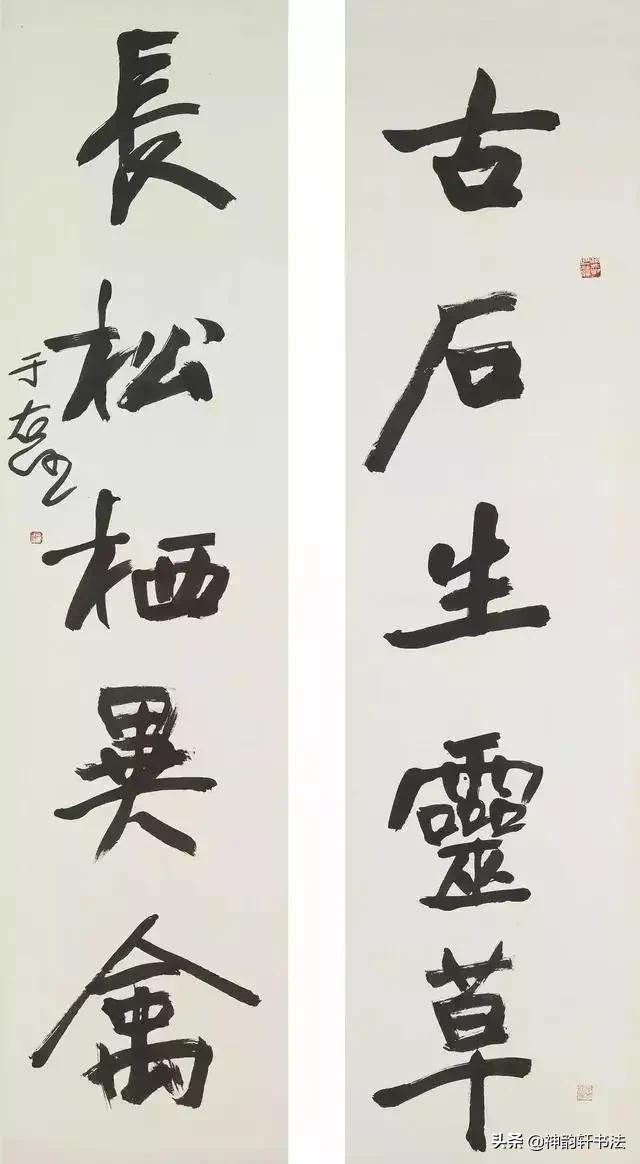 古石生靈草
長松栖異禽
于右任
头条 @神韵轩书法